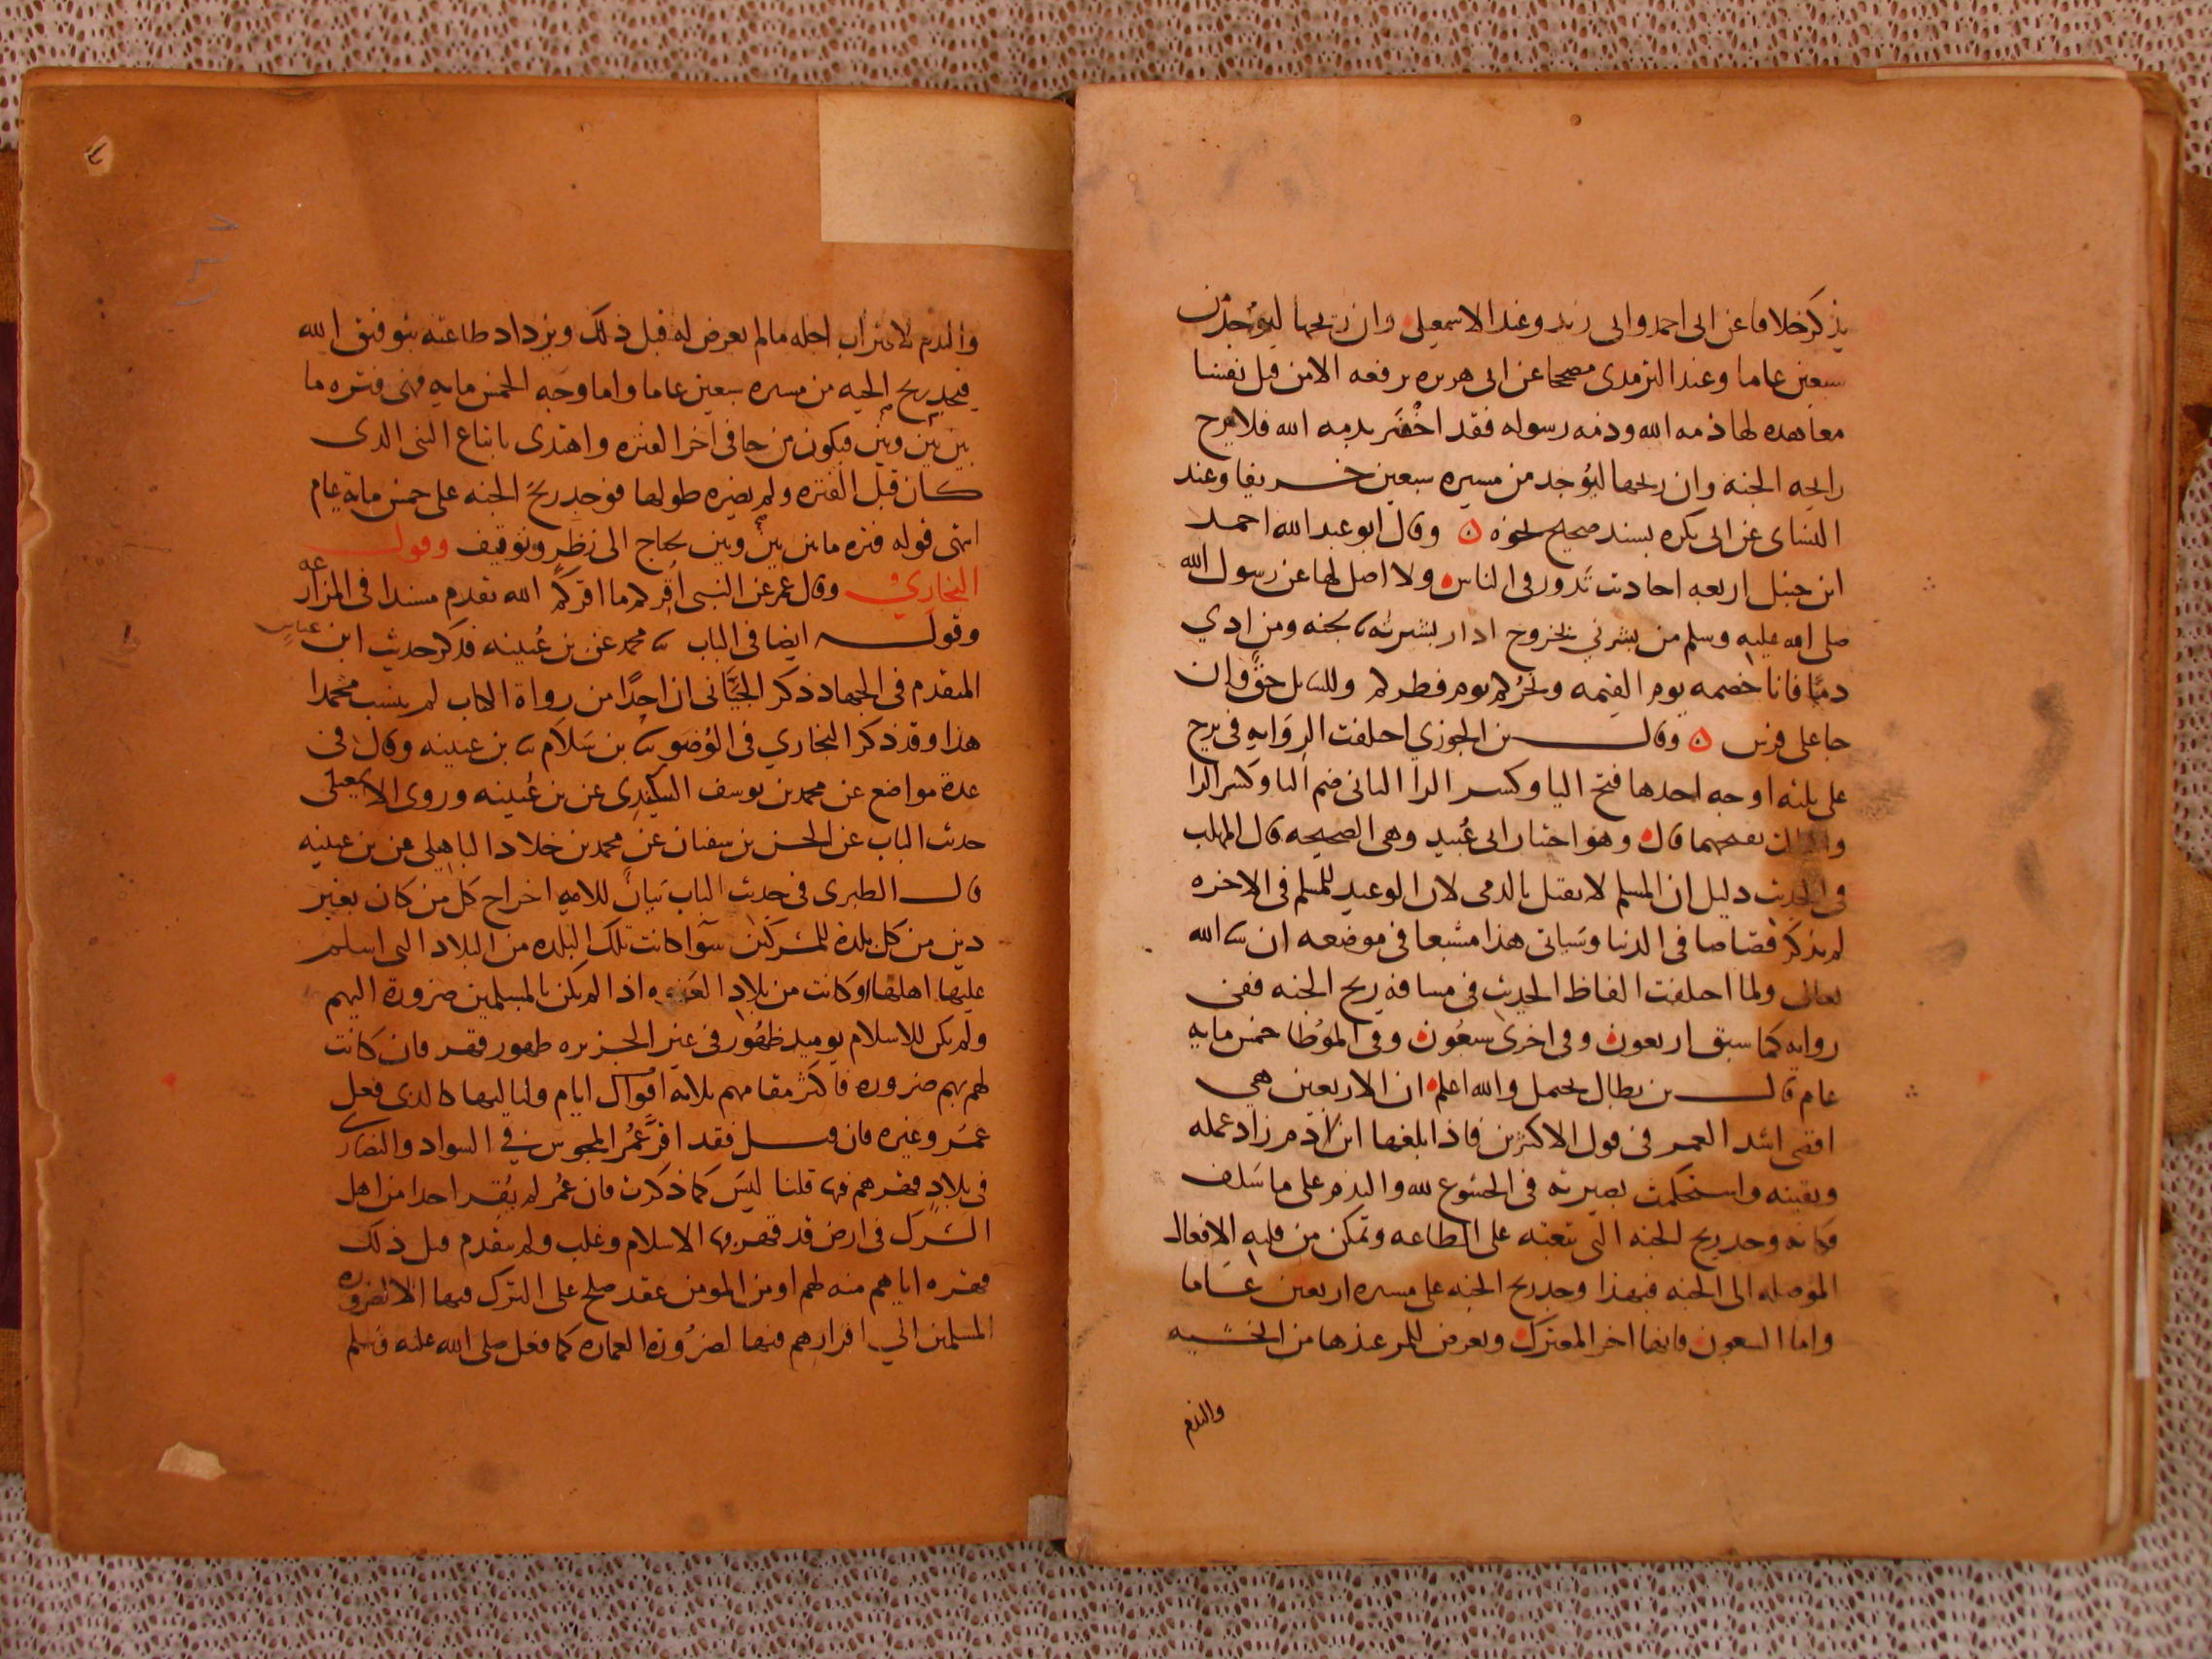 يذكر خلافا عن ابى احمد وابى زيد وعند الاسمعيلى وان ريحها ليوجد من
سبعين عاما وعند الترمدى مصححا عن ابى هريره يرفعه الا من قتل نفسا
معاهده لها ذمه الله وذمه رسوله فقد اخفر بدمه الله فلا يرح
رايحه الجنه وان ريحها ليوجد من مسيره سبعين خريفا وعند
النساى عن ابى بكره بسند صحيح نحوه ه وقال ابو عبد الله احمد
ابن حنبل اربعه احاديث تدور فى الناس ولا اصل لها عن رسول الله
صلى الله عليه وسلم من بشرني بخروج ادار بشرته بجنه ومن ادي
دميا فانا خصمه يوم القيمه ونحركم يوم فطركم وللسايل حق وان
جا على فرس ه وقال بن الجوزي اختلفت الروايه فى يرح
على ثلثه اوجه احدها فتح اليا وكسر الرا الثانى ضم اليا وكسر الرا
بفتحهما قال وهو اختيار ابى عبيد وهى الصحيحه قال المهلب
فى الحديث دليل ان المسلم لا يقتل بالدمى لان الوعيد للمسلم فى الاخره
لم يذكر قصاصا فى الدنيا وسياتى هذا مشبعا فى موضعه ان شا الله
تعالى ولما اختلفت الفاظ الحديث فى مسافه ريح الجنه ففى
روايه كما سبق اربعون وفى اخرى سبعون وفى الموطا خمس مايه
عام قال بن بطال يحتمل والله اعلم ان الاربعين هي
اقصى اشد العمر فى قول الاكثرين فاذا بلغها ابن ادم زاد عمله
ويقينه واستحكمت بصيرته فى الخشوع لله والندم على ما سلف
فكانه وجد ريح الجنه التى تعينه على الطاعه وتمكن من قلبه الافعال
الموصله الى الجنه فبهذا وجد ريح الجنه على مسيره اربعين عاما
واما السبعون فانها اخر المعترك ويعرض للمر عندها من الخشيه
والندم
والندم لاقتراب اجله ما لم يعرض له قبل ذلك ويزداد طاعته بتوفيق الله
فيجد ريح الجنه من مسيره سبعين عاما واما وجه الخمس مايه فهى فتره ما
بين نبى ونبى فيكون من جا فى اخر الفتره واهتدى باتباع النبى الدى
كان قبل الفتره ولم يضره طولها فوجد ريح الجنه على خمس مايه عام
انتهى قوله فتره ما بين نبى ونبى يحتاج الى نظر وتوقيف وقول
البخاري وقال عمر عن النبى اقركم ما اقركم الله تقدم مسندا فى المزارعه
وقوله ايضا فى الباب ثنا محمد عن بن عيينه فدكر حديث ابن عباس
المتقدم فى الجهاد ذكر الجيانى ان احدا من رواة الكتاب لم ينسب محمدا
هذا وقد ذكر البخاري فى الوضو ثنا بن سلام ثنا بن عيينه وقال فى
عدة مواضع عن محمد بن يوسف البيكندى عن بن عيينه وروى الاسمعيلى
حديث الباب عن الحسن بن سفيان عن محمد بن خلاد الباهلى عن بن عيينه
قال الطبرى فى حديث الباب بيان للامه اخراج كل من كان بغير
دين من كل بلدة للمشركين سوا كانت تلك البلده من البلاد التى اسلم
عليها اهلها او كانت من بلاد العنوه اذا لم يكن بالمسلمين ضرورة اليهم
ولم يكن للاسلام يوميد ظهور فى غير الجزيره ظهور قهر فان كانت
لهم بهم ضروره فاكثر مقامهم ثلاثه ايام ولياليها كالدى فعل
عمر وغيره فان قيل فقد اقر عمر المجوس في السواد والنصارى
فى بلاد قهرهم فيها قلنا ليس كما ذكرت فان عمر لم يقر احدا من اهل
الشرك فى ارض قد قهر فيها الاسلام وغلب ولم يتقدم قبل ذلك
قهره اياهم منه لهم او من المومنين عقد صلح على الترك فيها الا لضروره
المسلمين الي اقرارهم فيها لضرورة العماره كما فعل صلى الله عليه وسلم